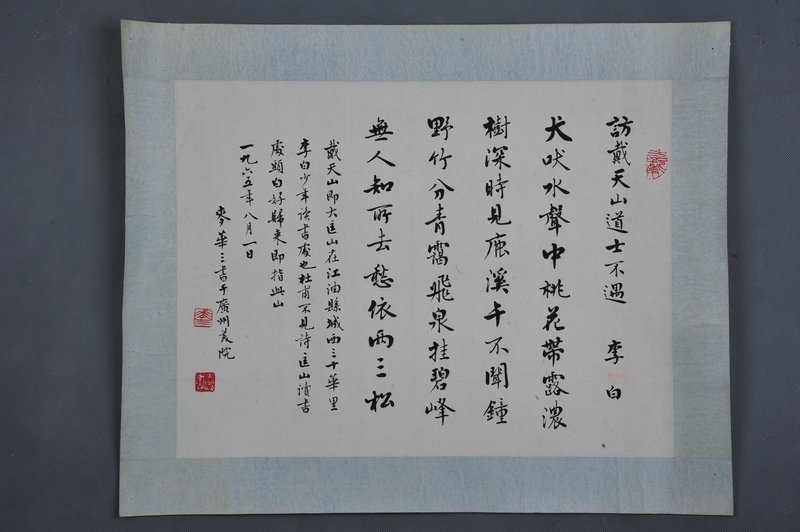 訪戴天山道士不遇 李白
犬吠水聲中桃花帶露濃
樹深時見鹿溪午不聞鐘
野竹分青靄飛泉挂碧峰
無人知所去愁依兩三松
戴天山即大匡山在江油縣城西三十華里
李白少年读書處也杜甫不見詩匡山讀書
處頭白好歸来即指此山
一九六五年八月一日
麥華三書于廣州美院